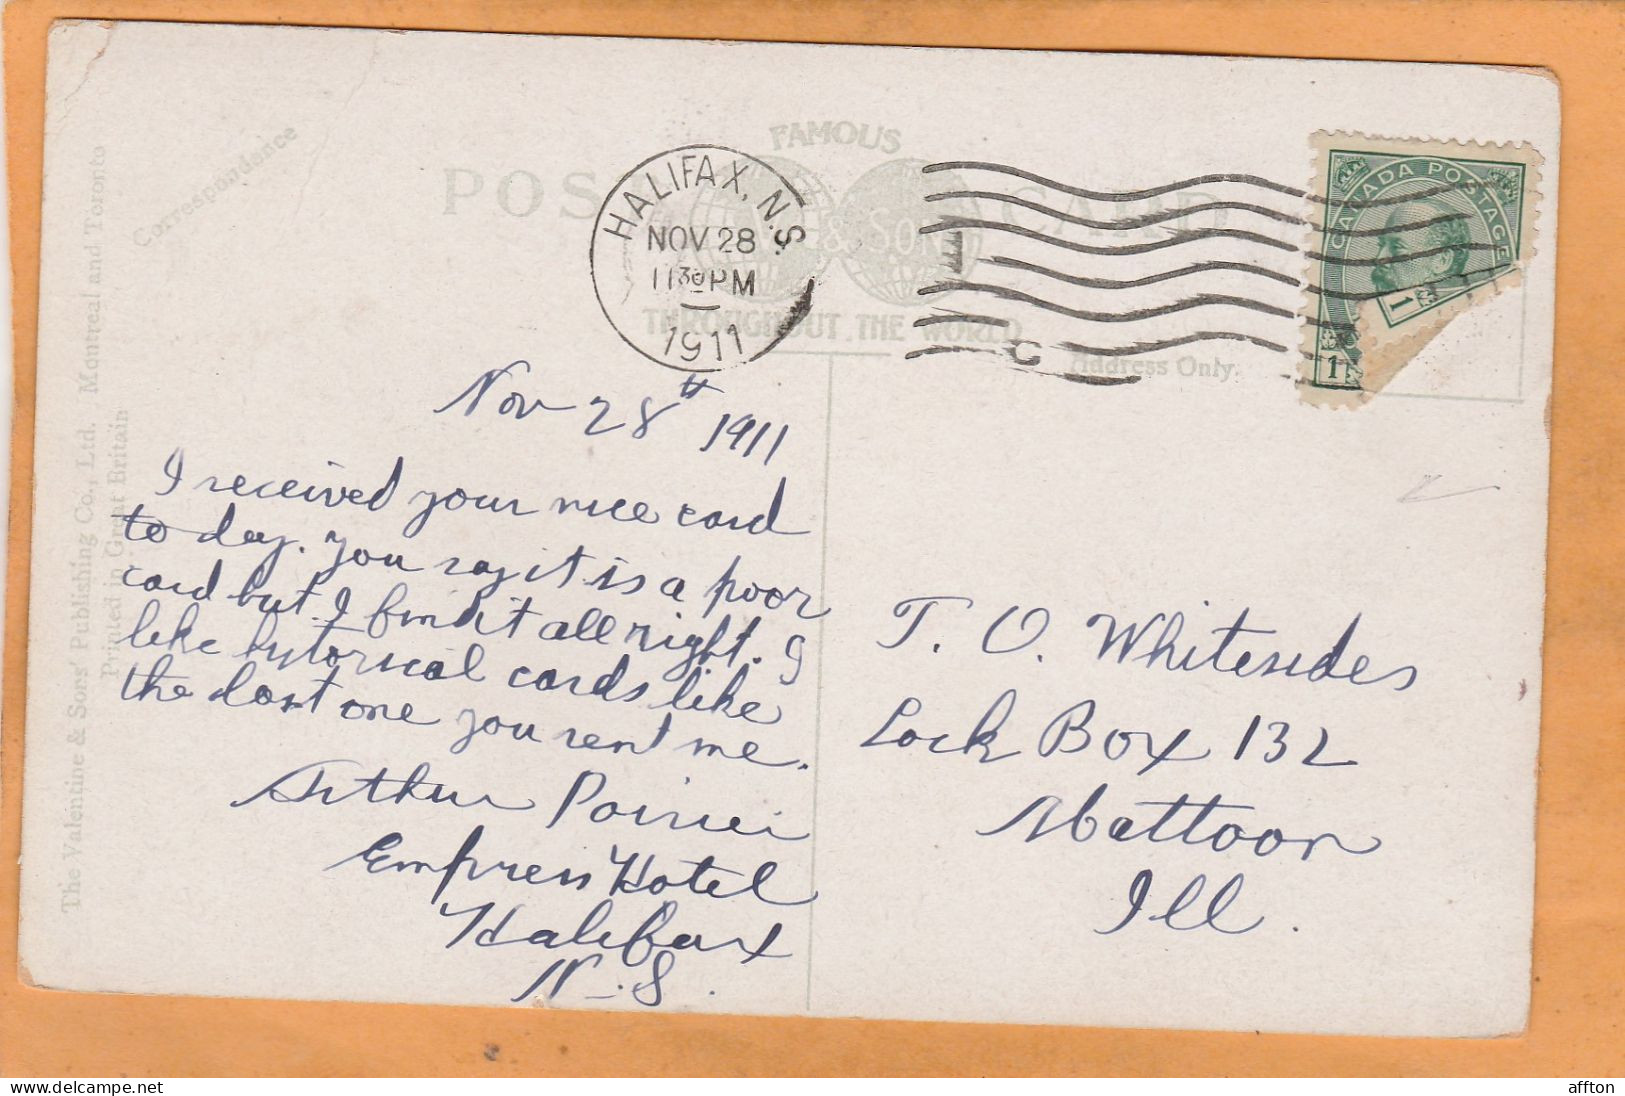 The Valentine & Sons' Publishing Co., Ltd. Montreal and Toronto
Printed in Great Britain
Correspondence
POS CARD
FAMOUS
& SON
THROUGHOUT THE WORLD
Address Only.
HALIFAX, N.S.
NOV 28
1130PM
1911
C
CANADA POSTAGE
1
1
Nov 28th 1911
I received your nice card
to day. you say it is a poor
card but I find it all right. I
like hytorical cards like
the last one you sent me.
Arthur Poirier
Empress Hotel
Halifax
N.S.
T. O. Whitesides
Lock Box 132
Mattoon
Ill.
affton